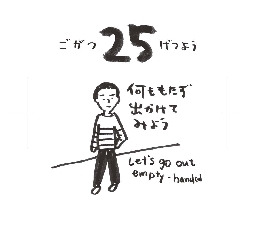 ごがつ 25 げつよう
何ももたず
出かけて
みよう
Let's go out
empty-handed